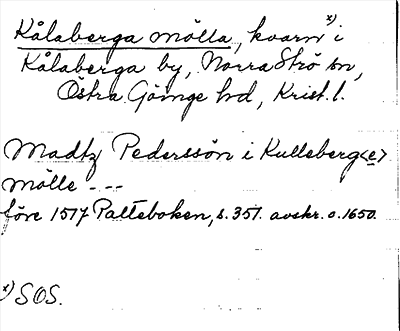 Kålaberga mölla, kvarn x) i
Kålaberga by, Norra Strö sn,
Östra Göinge hd, Krist. l.
Madtz Pederssön i Kulleberg<e>
mölle - - -
före 1517 Palteboken, s. 351. avskr. o. 1650.
x) SOS.